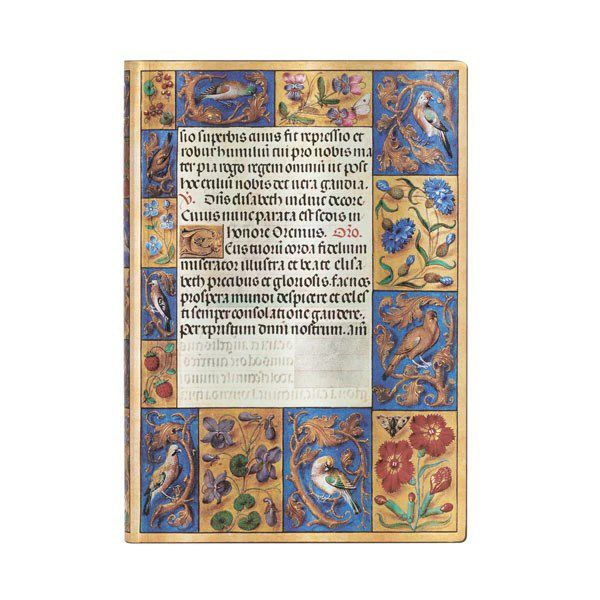 sio superbis cuius fit repressio et
robur humiliū cui pro nobis ma
ter pia rogo regem omniū ut post
hoc exiliū nobis det vera gaudia.
℣. Dn̄s elisabeth induit decore.
Cuius nunc parata est sedis in
honore Oremus. Oro.
Deus tuorū corda fidelium
miserator illustra et beate elisa
beth precibus et gloriosis. fac nos
prospera mundi despicere et celes
ti semper consolatione gaudere.
per xpristum dnm̄ nostrum. am̄